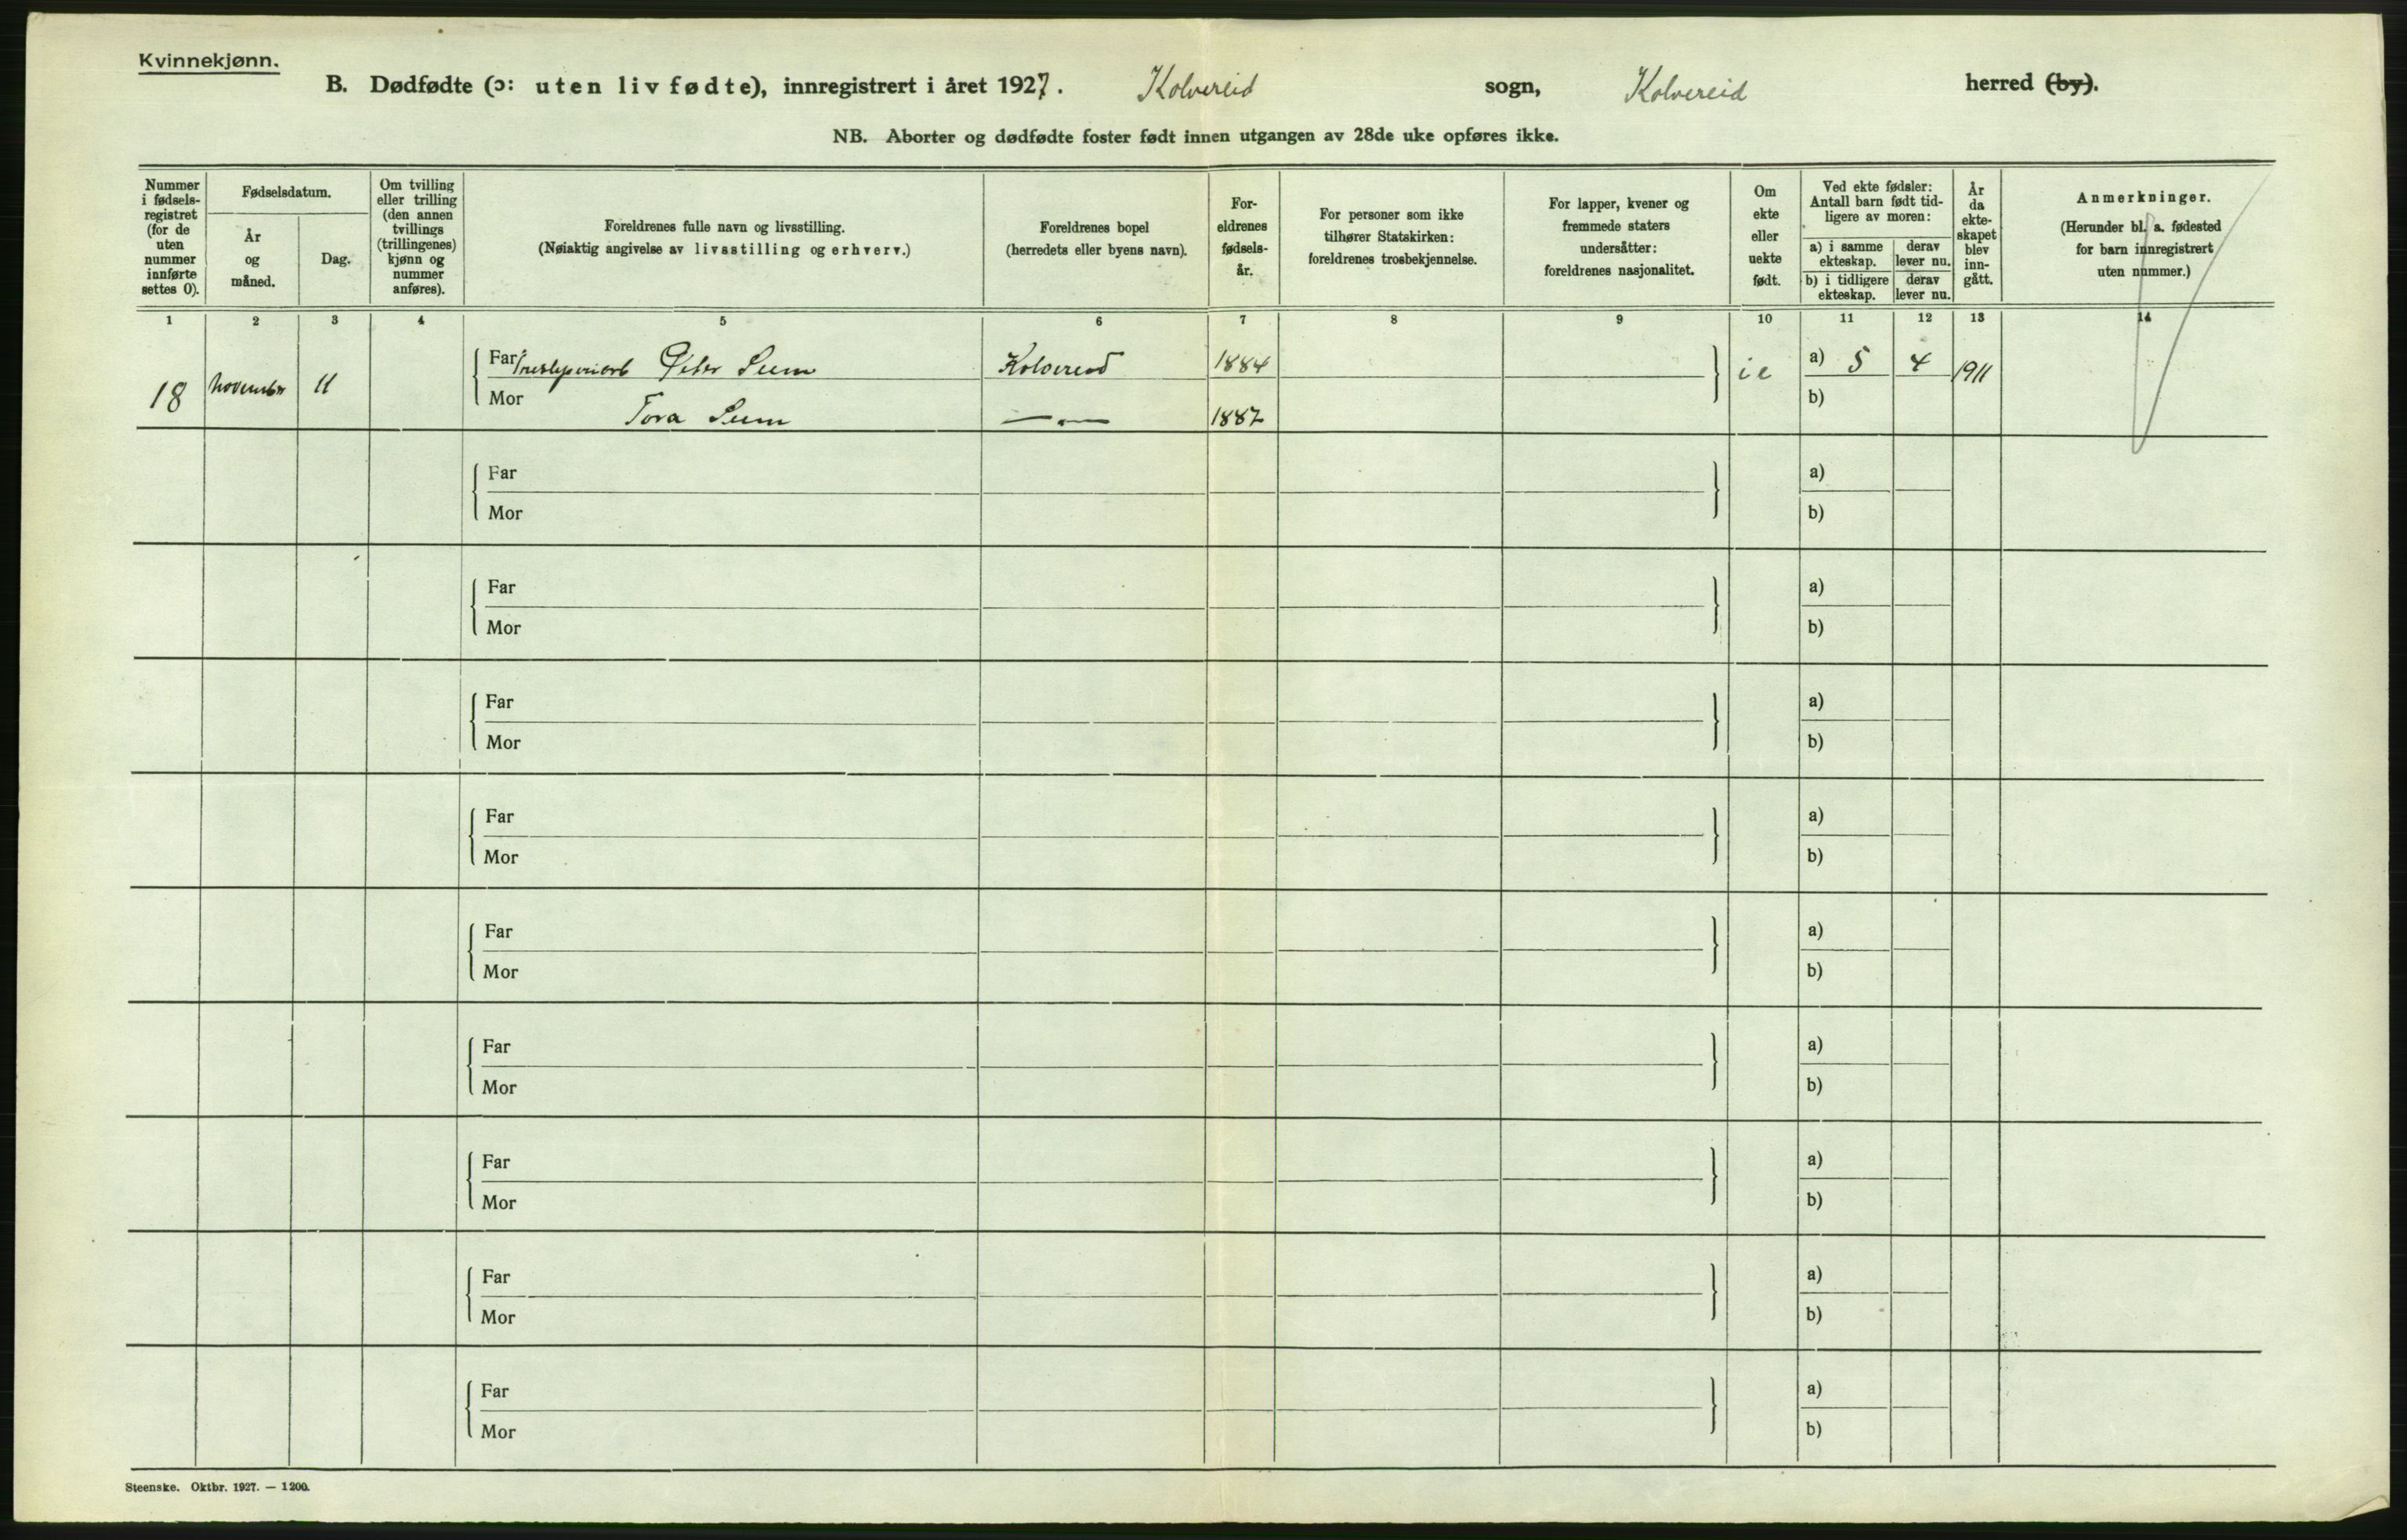 Kvinnekjønn.
B. Dødfødte (ɔ: uten liv fødte), innregistrert i året 1927. Kolvereid sogn, Kolvereid herred (by).
NB. Aborter og dødfødte foster født innen utgangen av 28de uke opføres ikke.
Nummer
i fødsels-
registret
(for de
uten
nummer
innførte
settes 0).
Fødselsdatum.
År
og
måned.
Dag.
Om tvilling
eller trilling
(den annen
tvillings
(trillingenes)
kjønn og
nummer
anføres).
Foreldrenes fulle navn og livsstilling.
(Nøiaktig angivelse av livsstilling og erhverv.)
Foreldrenes bopel
(herredets eller byens navn).
For-
eldrenes
fødsels-
år.
For personer som ikke
tilhører Statskirken:
foreldrenes trosbekjennelse.
For lapper, kvener og
fremmede staters
undersåtter:
foreldrenes nasjonalitet.
Om
ekte
eller
uekte
født.
Ved ekte fødsler:
Antall barn født tid-
ligere av moren:
a) i samme
ekteskap.
derav
lever nu.
b) i tidligere
ekteskap.
derav
lever nu.
År
da
ekte-
skapet
blev
inn-
gått.
Anmerkninger.
(Herunder bl. a. fødested
for barn innregistrert
uten nummer.)
1 2 3 4 5 6 7 8 9 10 11 12 13 14
Far Peter Sum Kolvereid 1884 a) 5 4
18 November 11 ie 1911
Mor Tora Sum — „ — 1887 b)
Far a)
Mor b)
Far a)
Mor b)
Far a)
Mor b)
Far a)
Mor b)
Far a)
Mor b)
Far a)
Mor b)
Far a)
Mor b)
Far a)
Mor b)
Far a)
Mor b)
Steenske. Oktbr. 1927. — 1200.